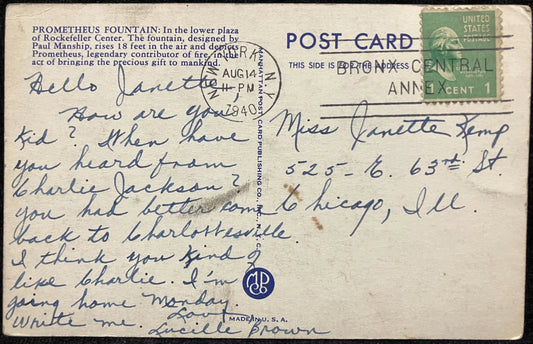 PROMETHEUS FOUNTAIN: In the lower plaza
of Rockefeller Center. The fountain, designed by
Paul Manship, rises 18 feet in the air and depicts
Prometheus, legendary contributor of fire, in the
act of bringing the precious gift to mankind.
POST CARD
THIS SIDE IS FOR THE ADDRESS
NEW YORK, N.Y.
AUG 14
11-PM
1940
BRONX CENTRAL
ANNEX
UNITED
STATES
POSTAGE
1 CENT 1
Hello Janette,
How are you
kid? When have
you heard from
Charlie Jackson?
you had better come
back to Charlottesville
I think you kind of
like Charlie. I'm
going home Monday.
Write me. Love
Lucille Brown
MANHATTAN POST CARD PUBLISHING CO., INC., N.Y.C.
MADE IN U.S.A.
Miss Janette Kemp
525-E. 63rd St.
Chicago, Ill.